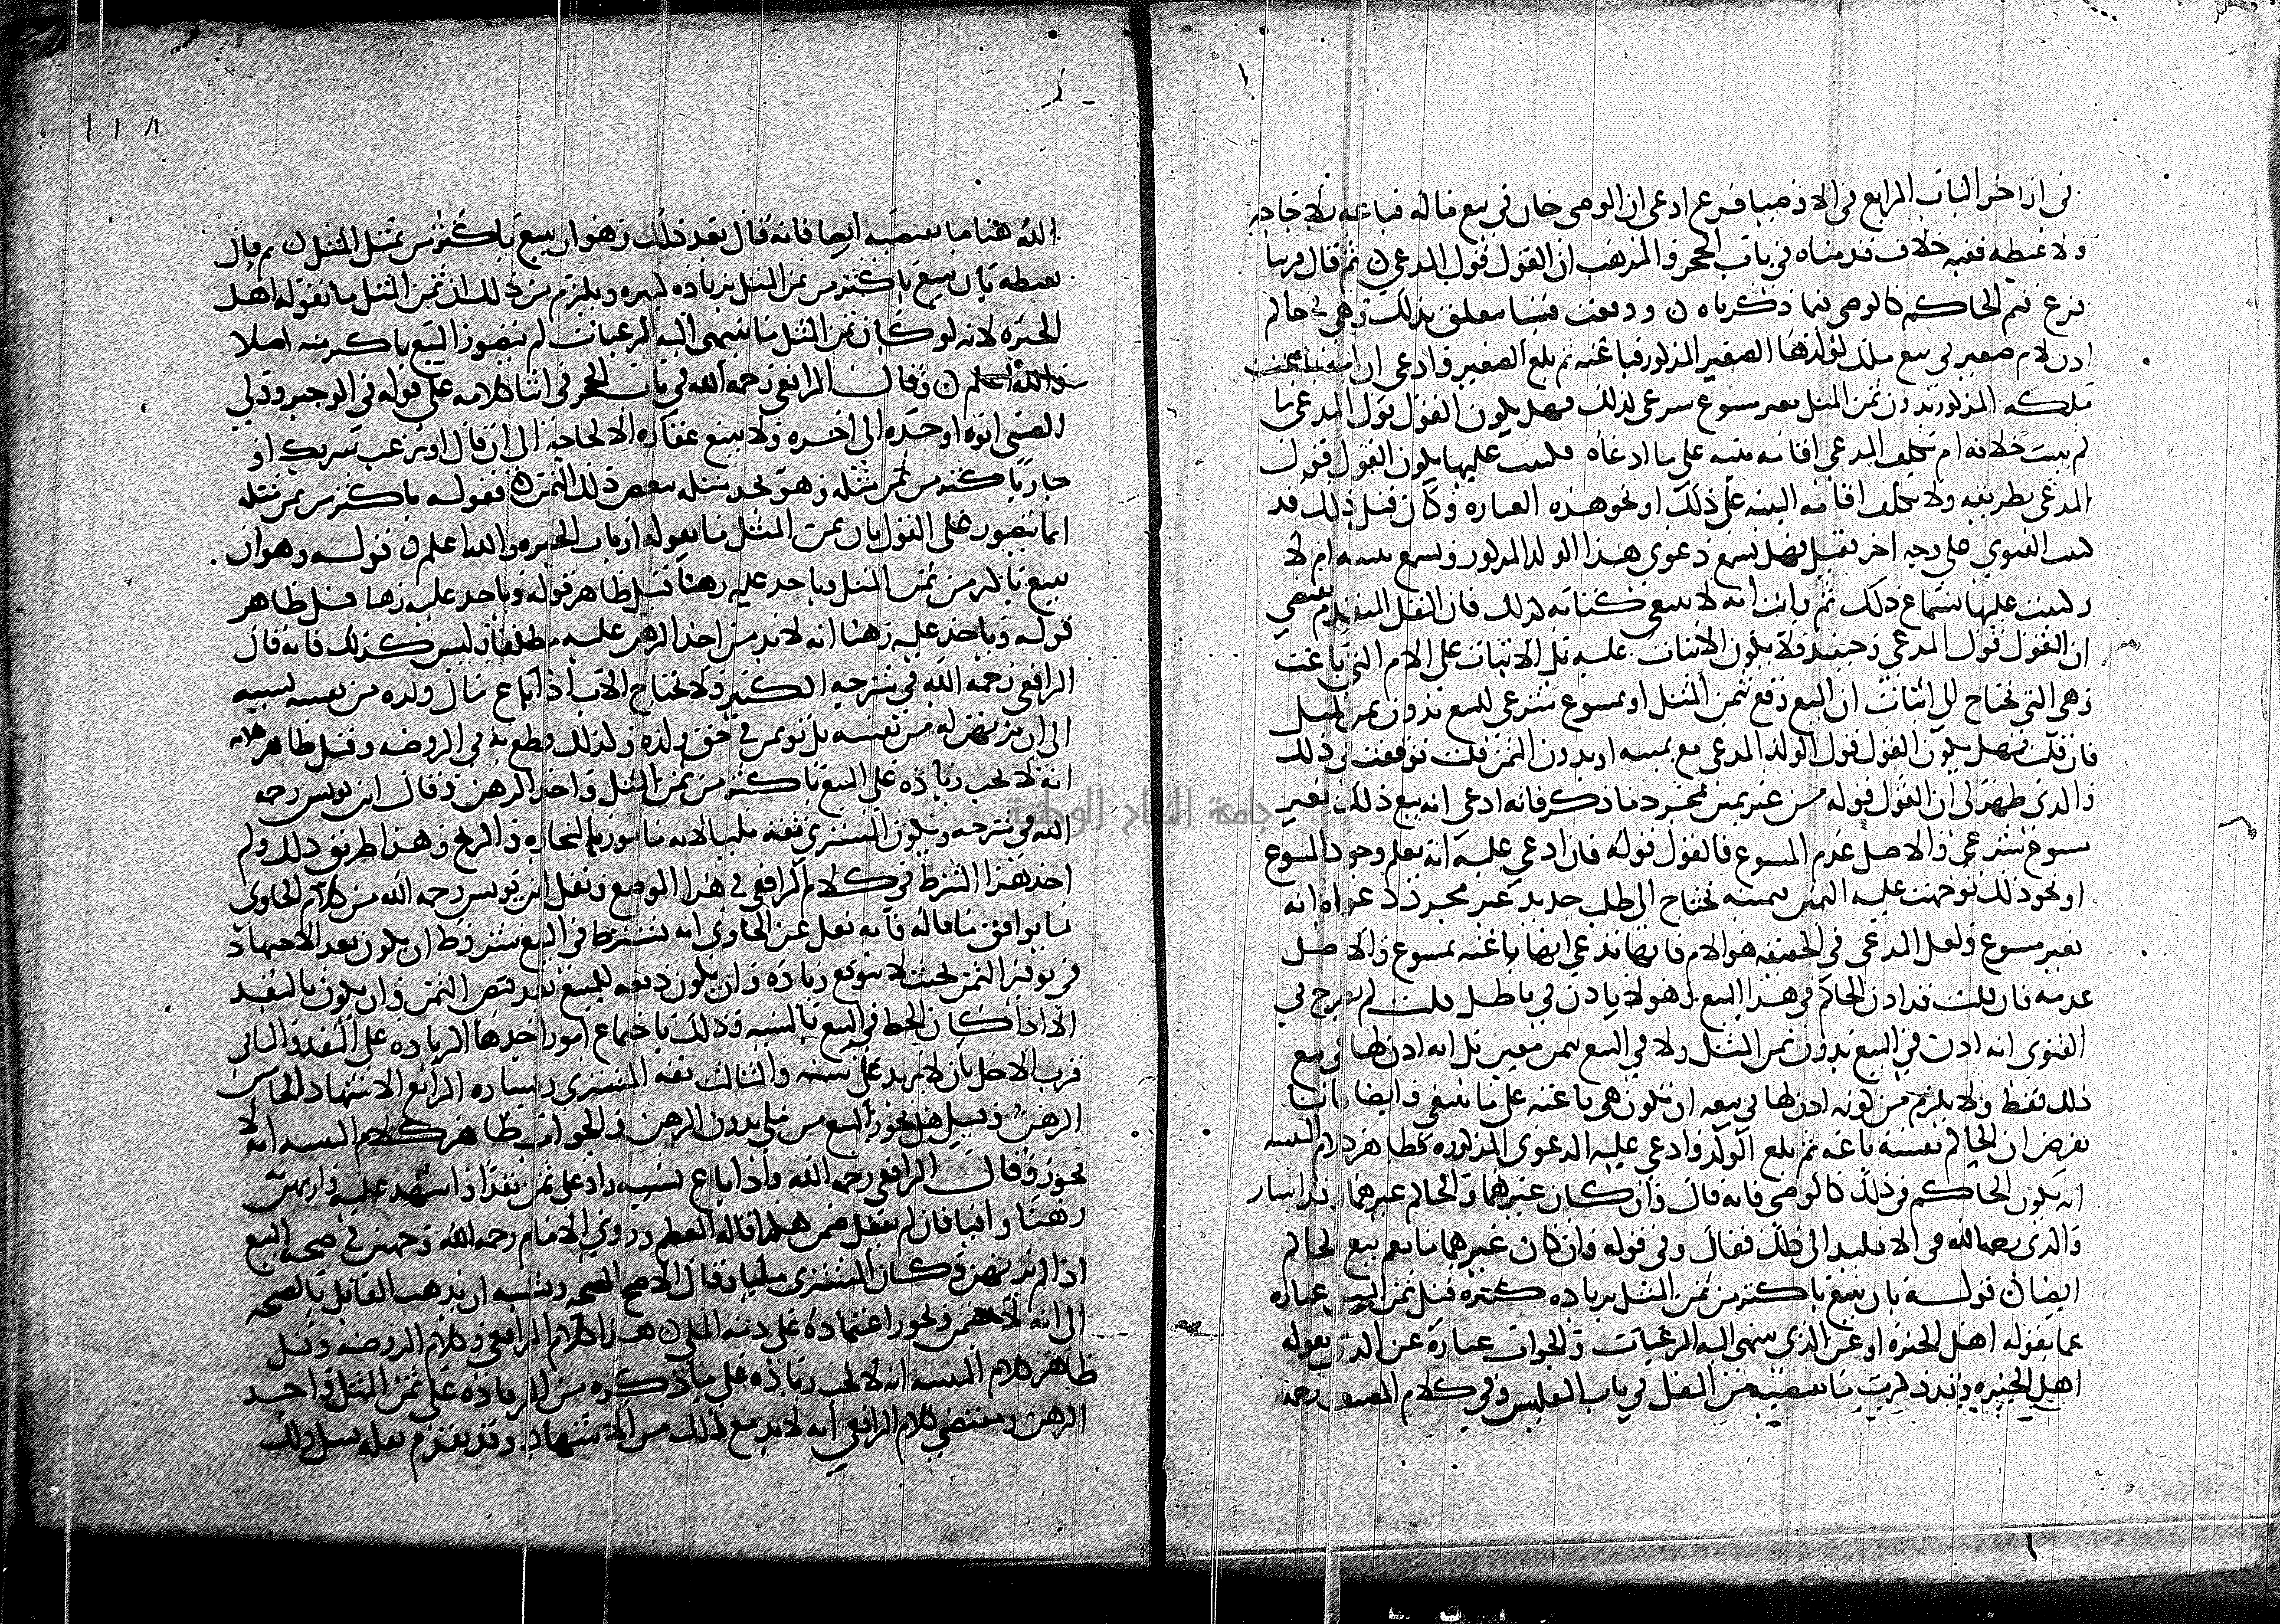 في اذا اخر الباب الرابع في الاوصيا فرع ادعى ان الوصي خان في بيع ماله فباعه بلا حاجة
ولا غبطة ففيه خلاف قدمناه في باب الحجر والمذهب ان القول قول المدعي ن ثم قال قريبا
فرع قيم الحاكم كالوصي فيما ذكرناه ن ووقعت فتيا معلق بذلك وهي حاكم
اذن لام صغير في بيع ملك لولدها الصغير المذكور فباعته ثم بلغ الصغير وادعى ان امه باعت
ملكه المذكور بدون ثمن المثل بغير مسوغ شرعي لذلك فهل يكون القول قول المدعي ما
لم يثبت خلافه ام تكلف المدعي اقامة بينة على ما ادعاه فكتبت عليها يكون القول قول
المدعي بطريقه ولا يكلف اقامة البينة على ذلك او نحو هذه العبارة وكان قبل ذلك قد
كتبت الفتوي على وجه اخر فقيل فهل تسمع دعوي هذا الولد المذكور وتسمع بينته ام لا
وكتبت عليها بسماع ذلك ثم رايت انه لا ينبغي كتابة لذلك فان النقل المتقدم يقتضي
ان القول قول المدعي وحينئذ فلا يكون الاثبات عليه بل الاثبات على الام التي باعت
وهي التي تحتاج الى اثبات ان البيع وقع بثمن المثل او بمسوغ شرعي للبيع بدون ثمن المثل
فان قلت فهل يكون القول قول الولد المدعي مع يمينه او بدون الثمن قلت توقفت في ذلك
والذي ظهر لي ان القول قوله من غير يمين لمجرد ما ذكر فانه ادعى انه بيع ذلك بغير
مسوغ شرعي والاصل عدم المسوغ فالقول قوله فان ادعي عليه انه يعلم وجود المسوغ
او نحو ذلك توجهت عليه اليمين يمينه تحتاج الى طلب جديد غير مجرد دعواه انه
بغير مسوغ ولعل المدعي في الحقيقة هو الام فانها تدعي انها باعته بمسوغ والاصل
عدمه فان قلت قد اذن الحاكم في هذا البيع وهو لا ياذن في باطل قلت لم يصرح في
الفتوي انه اذن في البيع بدون ثمن المثل ولا في البيع بثمن معين بل انه اذن لها في بيع
ذلك فقط ولا يلزم من كونه اذن لها في بيعه ان تكون هي باعته على ما ينبغي وايضا فانا
نفرض ان الحاكم بنفسه باعه ثم بلغ الولد وادعي عليه الدعوي المذكورة فظاهر كلام التنبيه
انه يكون الحاكم في ذلك كالوصي فانه قال وان كان غيرهما والحاكم غيرهما وقد اشار
والدي رحمه الله في الاقليد الى ذلك فقال وفي قوله وان كان غيرهما ما يعم بيع الحاكم
ايضا ن قوله بان يبيع باكثر من ثمن المثل بزيادة كثيرة قيل ثمن المثل عبارة
عما يقوله اهل الخبرة او عن الذي ينتهي اليه الرغبات والجواب عبارة عن الذي يقوله
اهل الخبرة وقد ذكرت ما يقتضيه من النقل في باب التفليس وفي كلام المصنف رحمه
١١٨
الله هنا ما يقتضيه ايضا فانه قال بعد ذلك وهو ان يبيع باكثر من ثمن المثل ن ثم قال
بغبطة بان يبيع باكثر من ثمن المثل بزيادة كثيرة ويلزم من ذلك ان ثمن المثل ما يقوله اهل
الخبرة لانه لو كان ثمن المثل ما تنتهي اليه الرغبات لم يتصور البيع باكثر منه اصلا
والله اعلم ن وقال الرافعي رحمه الله في باب الحجر في اثنا كلامه على قوله في الوجيز وولي
الصبي ابوه او جده الى اخره ولا يبيع عقاره الا لحاجة الى ان قال او يرغب شريك او
جار باكثر من ثمن مثله وهو يجد مثله ببعض ذلك الثمن ن فقوله باكثر من ثمن مثله
انما يتصور على القول بان ثمن المثل ما يقوله ارباب الخبرة والله اعلم ن قوله وهو ان
يبيع باكثر من ثمن المثل وياخذ عليه رهنا قيل ظاهر قوله وياخذ عليه رهنا قيل ظاهر
قوله وياخذ عليه رهنا انه لابد من اخذ الرهن عليه مطلقا وليس كذلك فانه قال
الرافعي رحمه الله في شرحيه الكبير ولا يحتاج الاب اذا باع مال ولده من نفسه نسيئة
الى ان يرتهن له من نفسه بل يؤتمن في حق ولده وكذلك قطع به في الروضة وقيل ظاهر كلامه
انه لا يجب زيادة على البيع باكثر من ثمن المثل واخذ الرهن وقال ابن يونس رحمه
الله في شرحه ويكون المشتري ثقة مليا لانه مامور بالتجارة والربح وهذا طريق ذلك ولم
اجد هذا الشرط في كلام الرافعي في هذا الموضع ونقل ابن يونس رحمه الله من كلام الحاوي
ما يوافق ما قاله فانه نقل عن الحاوي انه يشترط في البيع شروط ان يكون بعد الاجتهاد
في توفير الثمن بحيث لا يتوقع زيادة وان يكون دفعه للمبيع بعد قبض الثمن وان يكون بالنقد
الا اذا كان الحظ في البيع بالنسية وذلك باجتماع امور احدها الزيادة على النقد والثاني
قرب الاجل بان لا يزيد على سنة والثالث ثقة المشتري ويساره الرابع الاشهاد الخامس
الرهن وقيل هل يجوز البيع من ملي بدون الرهن والجواب ظاهر كلام التنبيه انه لا
يجوز وقال الرافعي رحمه الله واذا باع نسيئة زاد على ثمن نقدا واشهد عليه وارتهن
رهنا وافيا فان لم يفعل ضمن هكذا قاله المعظم وروي الامام رحمه الله وجهين في صحة البيع
اذا لم يرتهن وكان المشتري مليا وقال الاصح الصحة ويشبه ان يذهب القائل بالصحة
الى انه لا يضمن ويجوز اعتماده على ذمة الملي ن هذا كلام الرافعي وكلام الروضة وقيل
ظاهر كلام التنبيه انه لا يجب زيادة على ما ذكره من الزيادة على ثمن المثل واخذ
الرهن ومقتضي كلام الرافعي انه لا بد مع ذلك من الاشهاد وقد تقدم نقله قبل ذلك
جامعة النجاح الوطنية